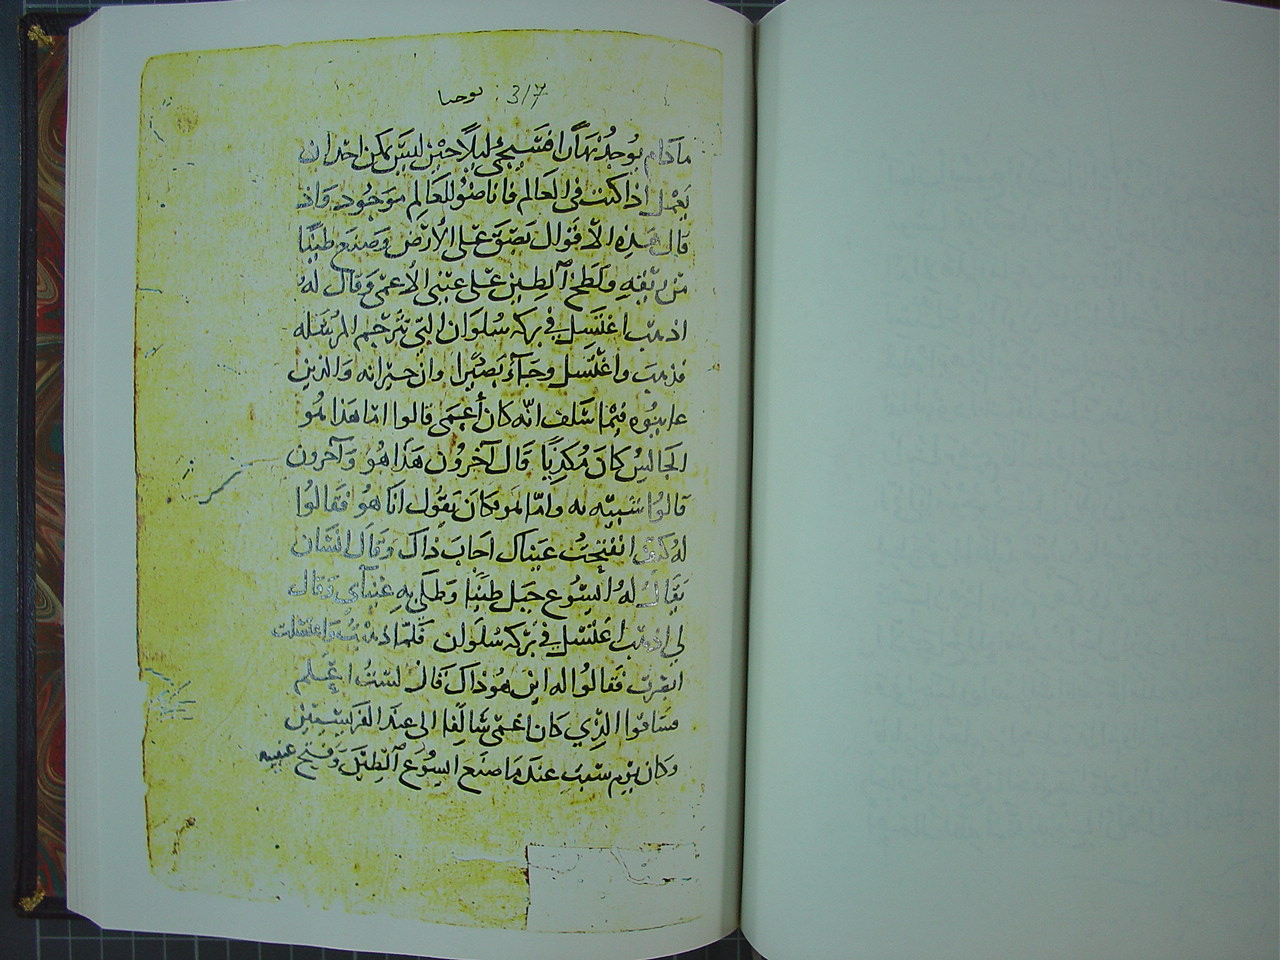 يوحنا : 317
ما دام يوجد نهارًا فسيجئ ليلًا حين ليس يمكن احد ان
يعمل اذا كنت فى العالم فانا ضوُ للعالم موجود واذ
قال هذه الاقوال بصق على الأرض وصنع طينًا
من ريقه ولطخ الطين على عينى الاعمى وقال له
اذهب اغتسل في بركه سلوان التى تترجم المرسله
فذهب واغتسل وجآء بصيرًا وان جيرانه والذين
عاينوه فيما سلف انه كان أعمى قالوا اما هذا هو
الجالس كان مكديًا قال آخرون هذا هو وآخرون
قالوا شبيه به واما هو فكان يقول انا هو فقالوا
له كيف انفتحت عيناك اجاب ذاك وقال انسان
يقال له ايسوع جبل طينًا وطلى به عيناي وقال
لي اذهب اغتسل في بركه سلوان فلما ذهبت واغتسلت
ابصرت فقالوا له اين هو ذاك قال لست اعلم
فساقوا الذي كان اعمى سالفا الى عند الفريسيين
وكان يوم سبت عند ما صنع ايسوع الطين وفتح عينيه